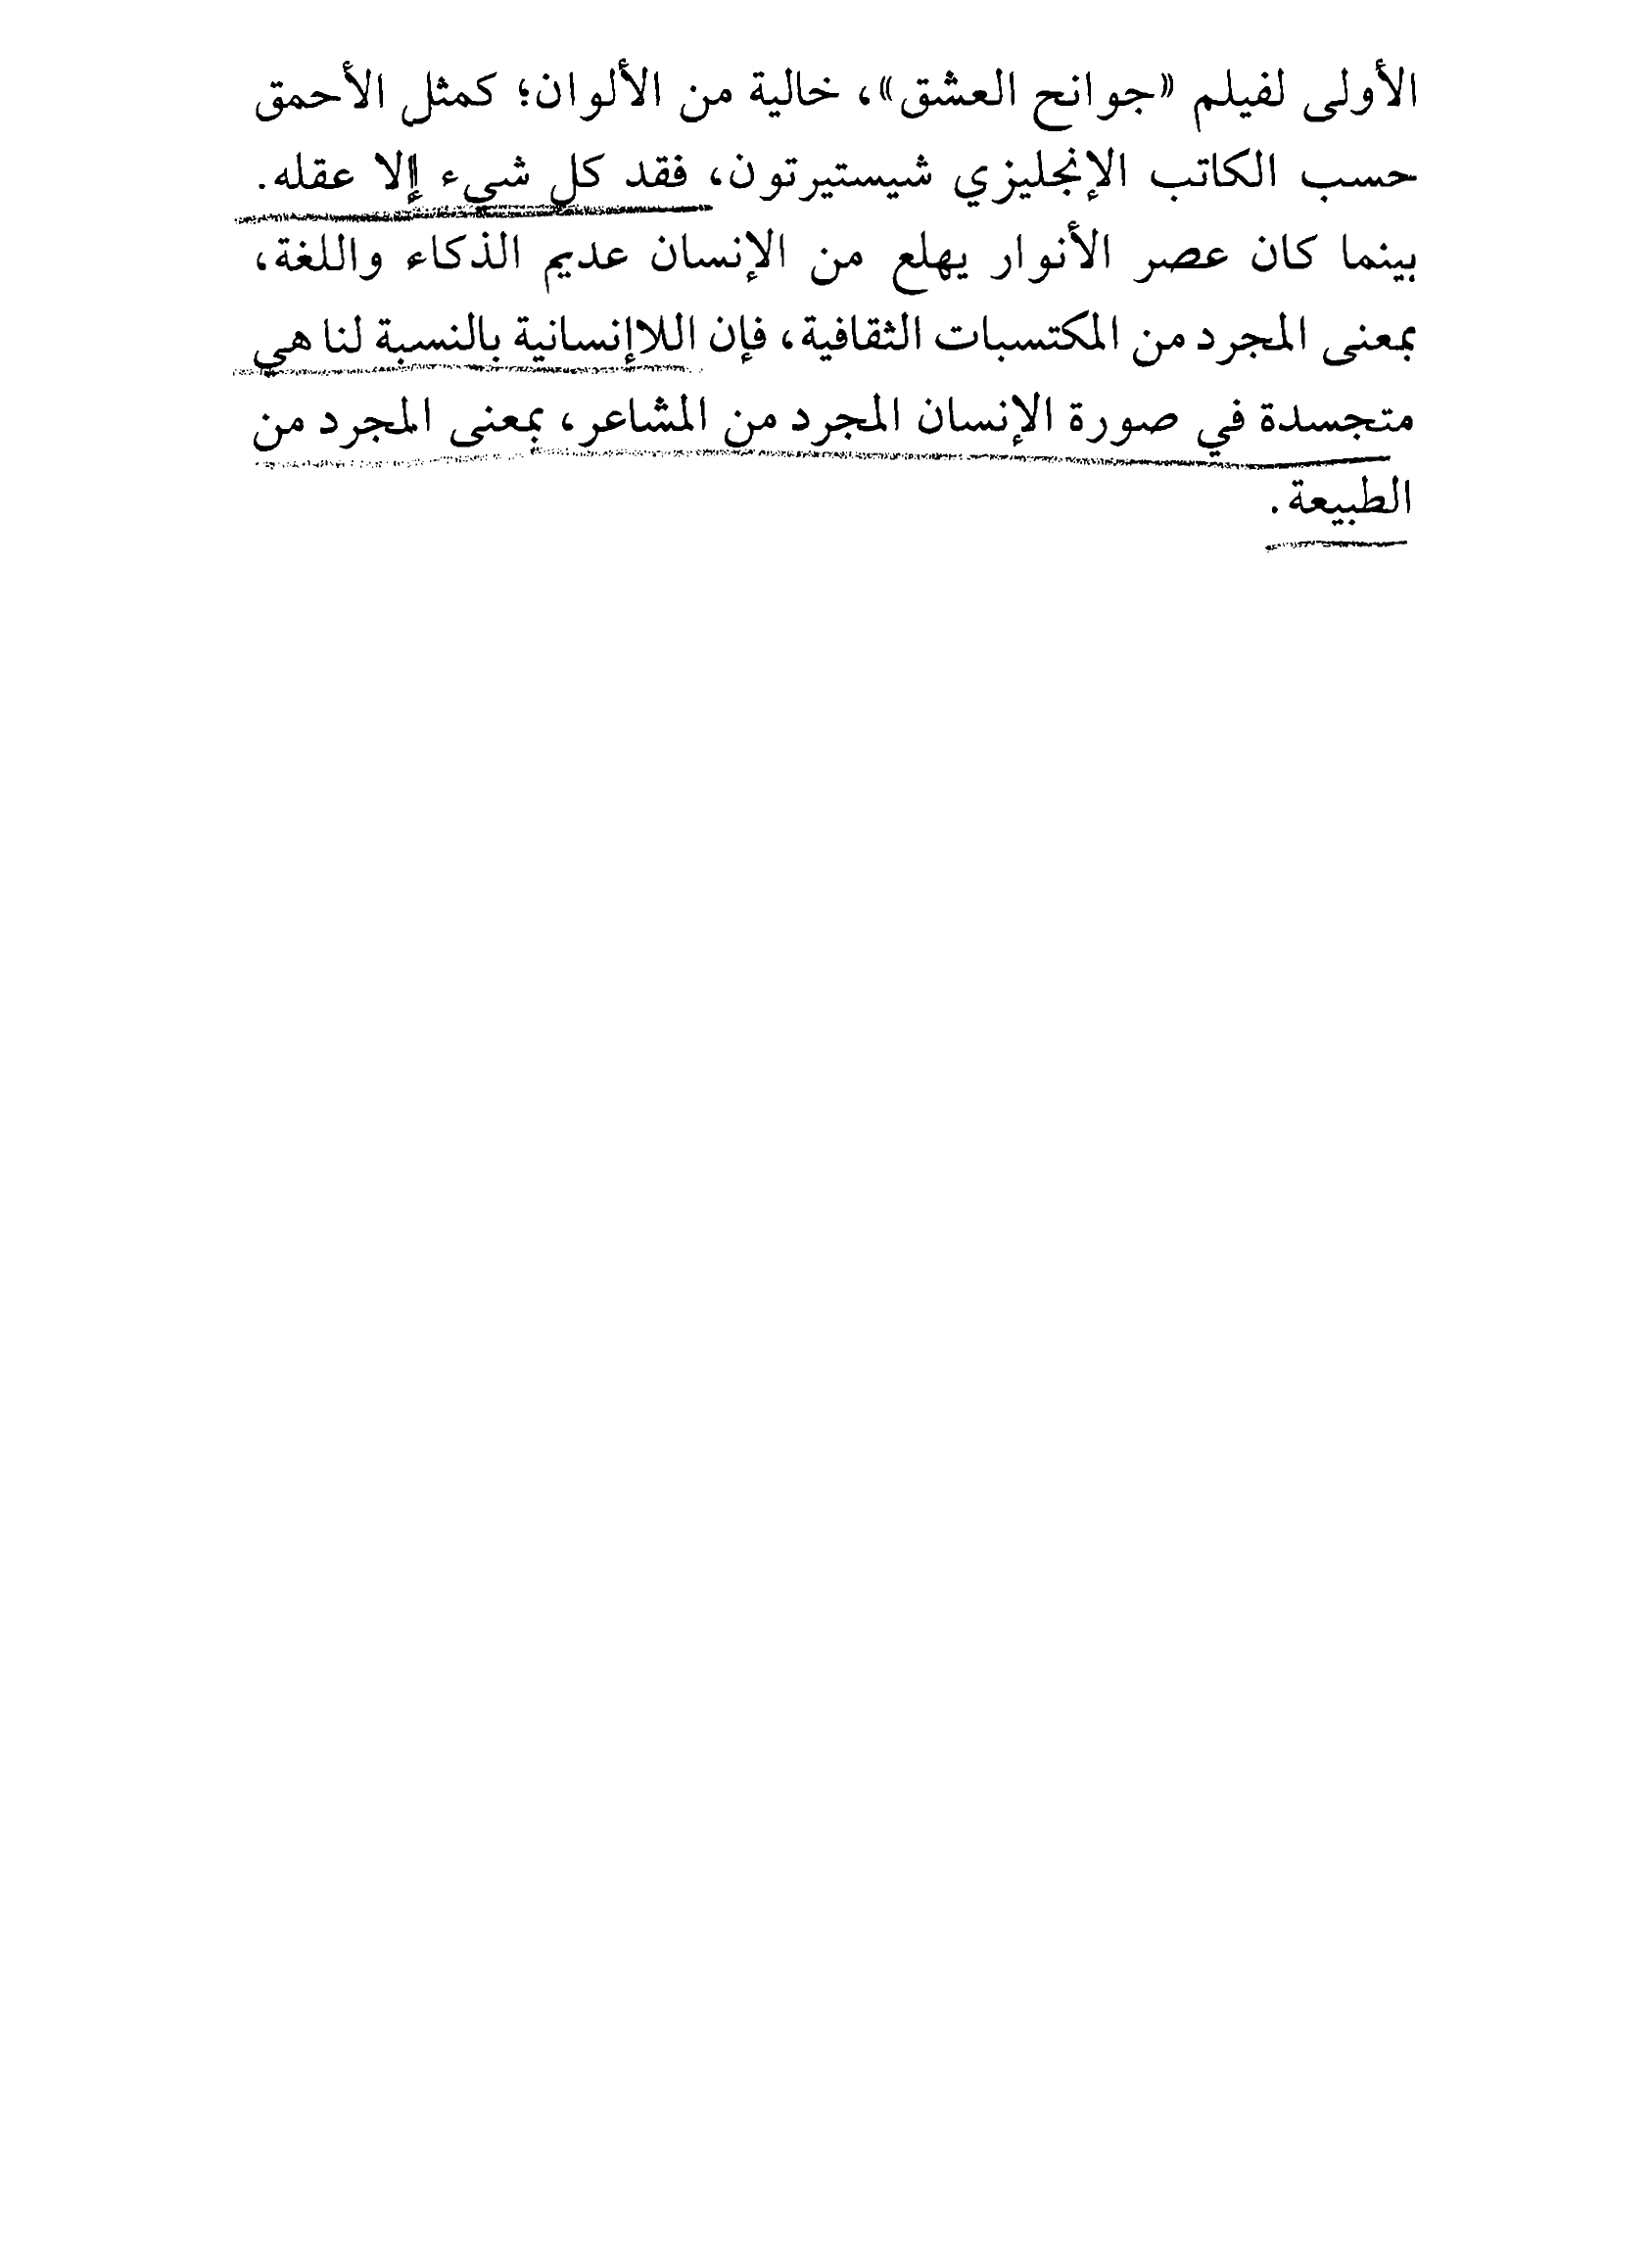 الأولى لفيلم «جوانح العشق»، خالية من الألوان؛ كمثل الأحمق
حسب الكاتب الإنجليزي شيستيرتون، فقد كل شيء إلا عقله.
بينما كان عصر الأنوار يهلع من الإنسان عديم الذكاء واللغة،
بمعنى المجرد من المكتسبات الثقافية، فإن اللاإنسانية بالنسبة لنا هي
متجسدة في صورة الإنسان المجرد من المشاعر، بمعنى المجرد من
الطبيعة.